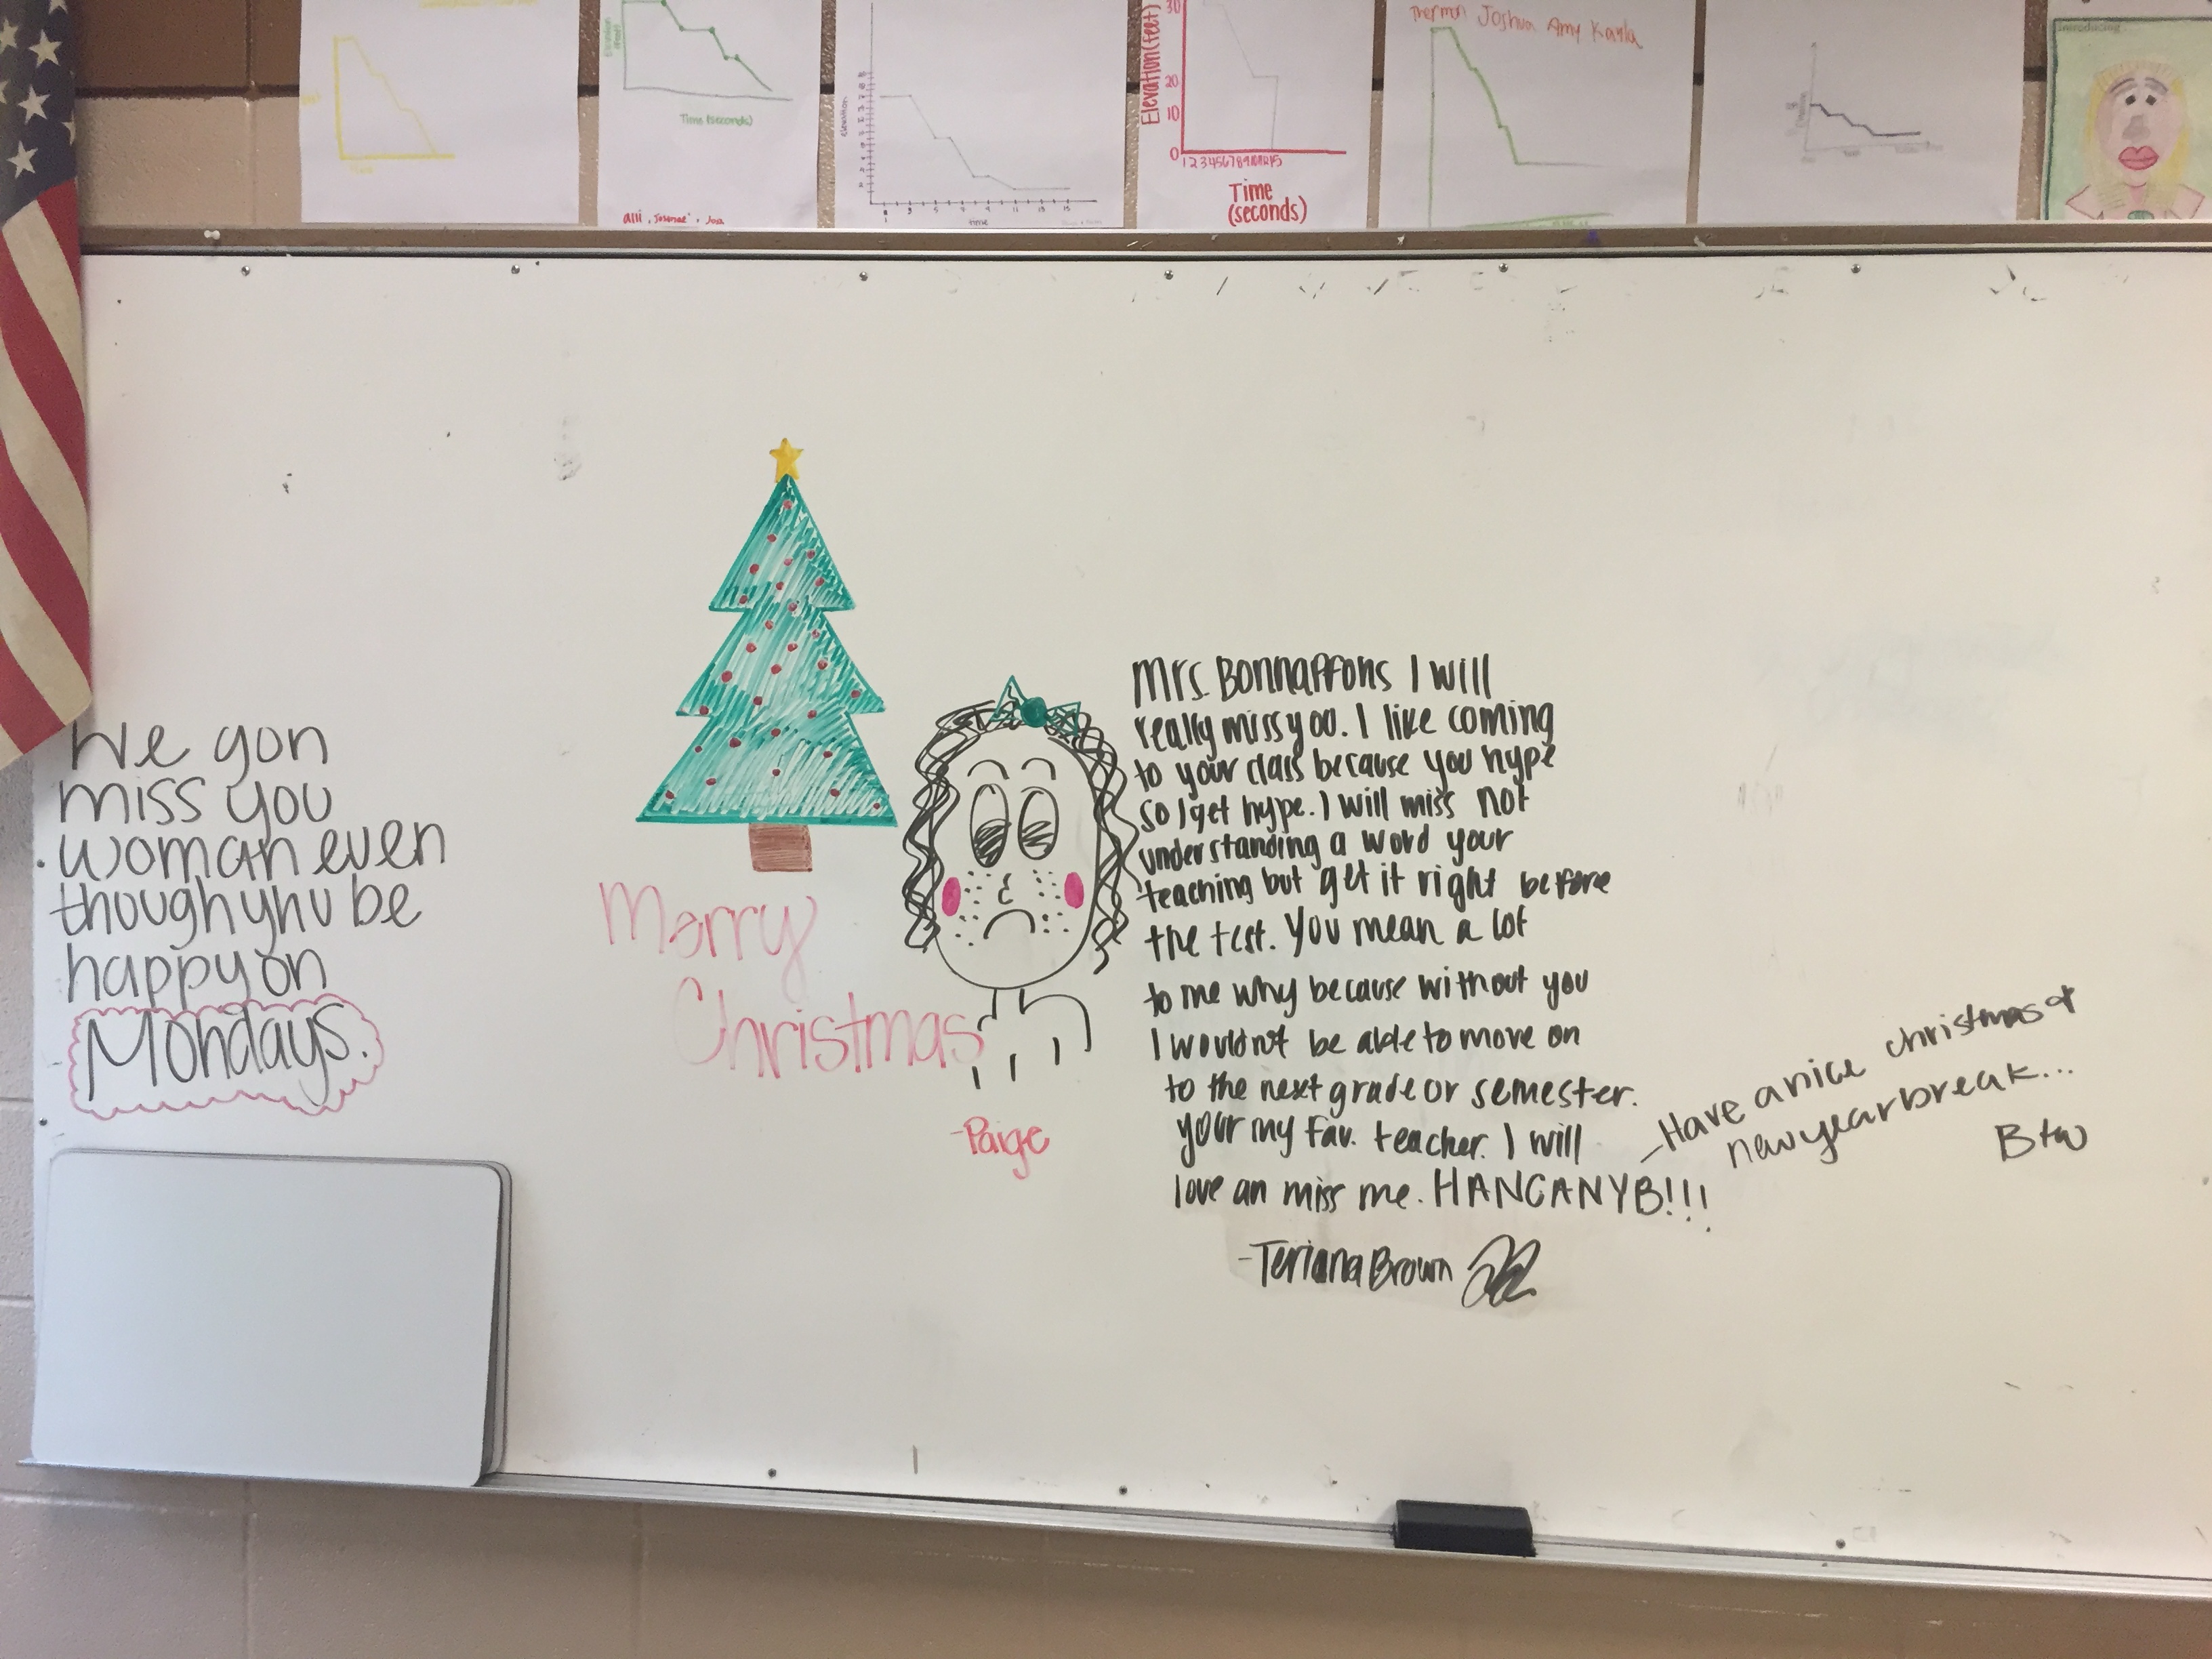 Time (seconds)
alli, Josmae', Jose
elevation
time
Elevation (feet)
30
20
10
0
1 2 3 4 5 6 7 8 9 10 11 12 13 14 15
Time
(seconds)
Thermon Joshua Amy Kayla
Introducing
We gon
miss you
woman even
though yhu be
happy on
Mondays.
Merry
Christmas
-Paige
Mrs. Bonnaffons I will
really miss you. I like coming
to your class because you hype
so I get hype. I will miss not
understanding a word your
teaching but get it right before
the test. You mean a lot
to me why because without you
I wouldn't be able to move on
to the next grade or semester.
your my fav. teacher. I will
love an miss me. HANCANYB!!!
-Teriana Brown
-Have a nice christmas &
new year break...
Btw